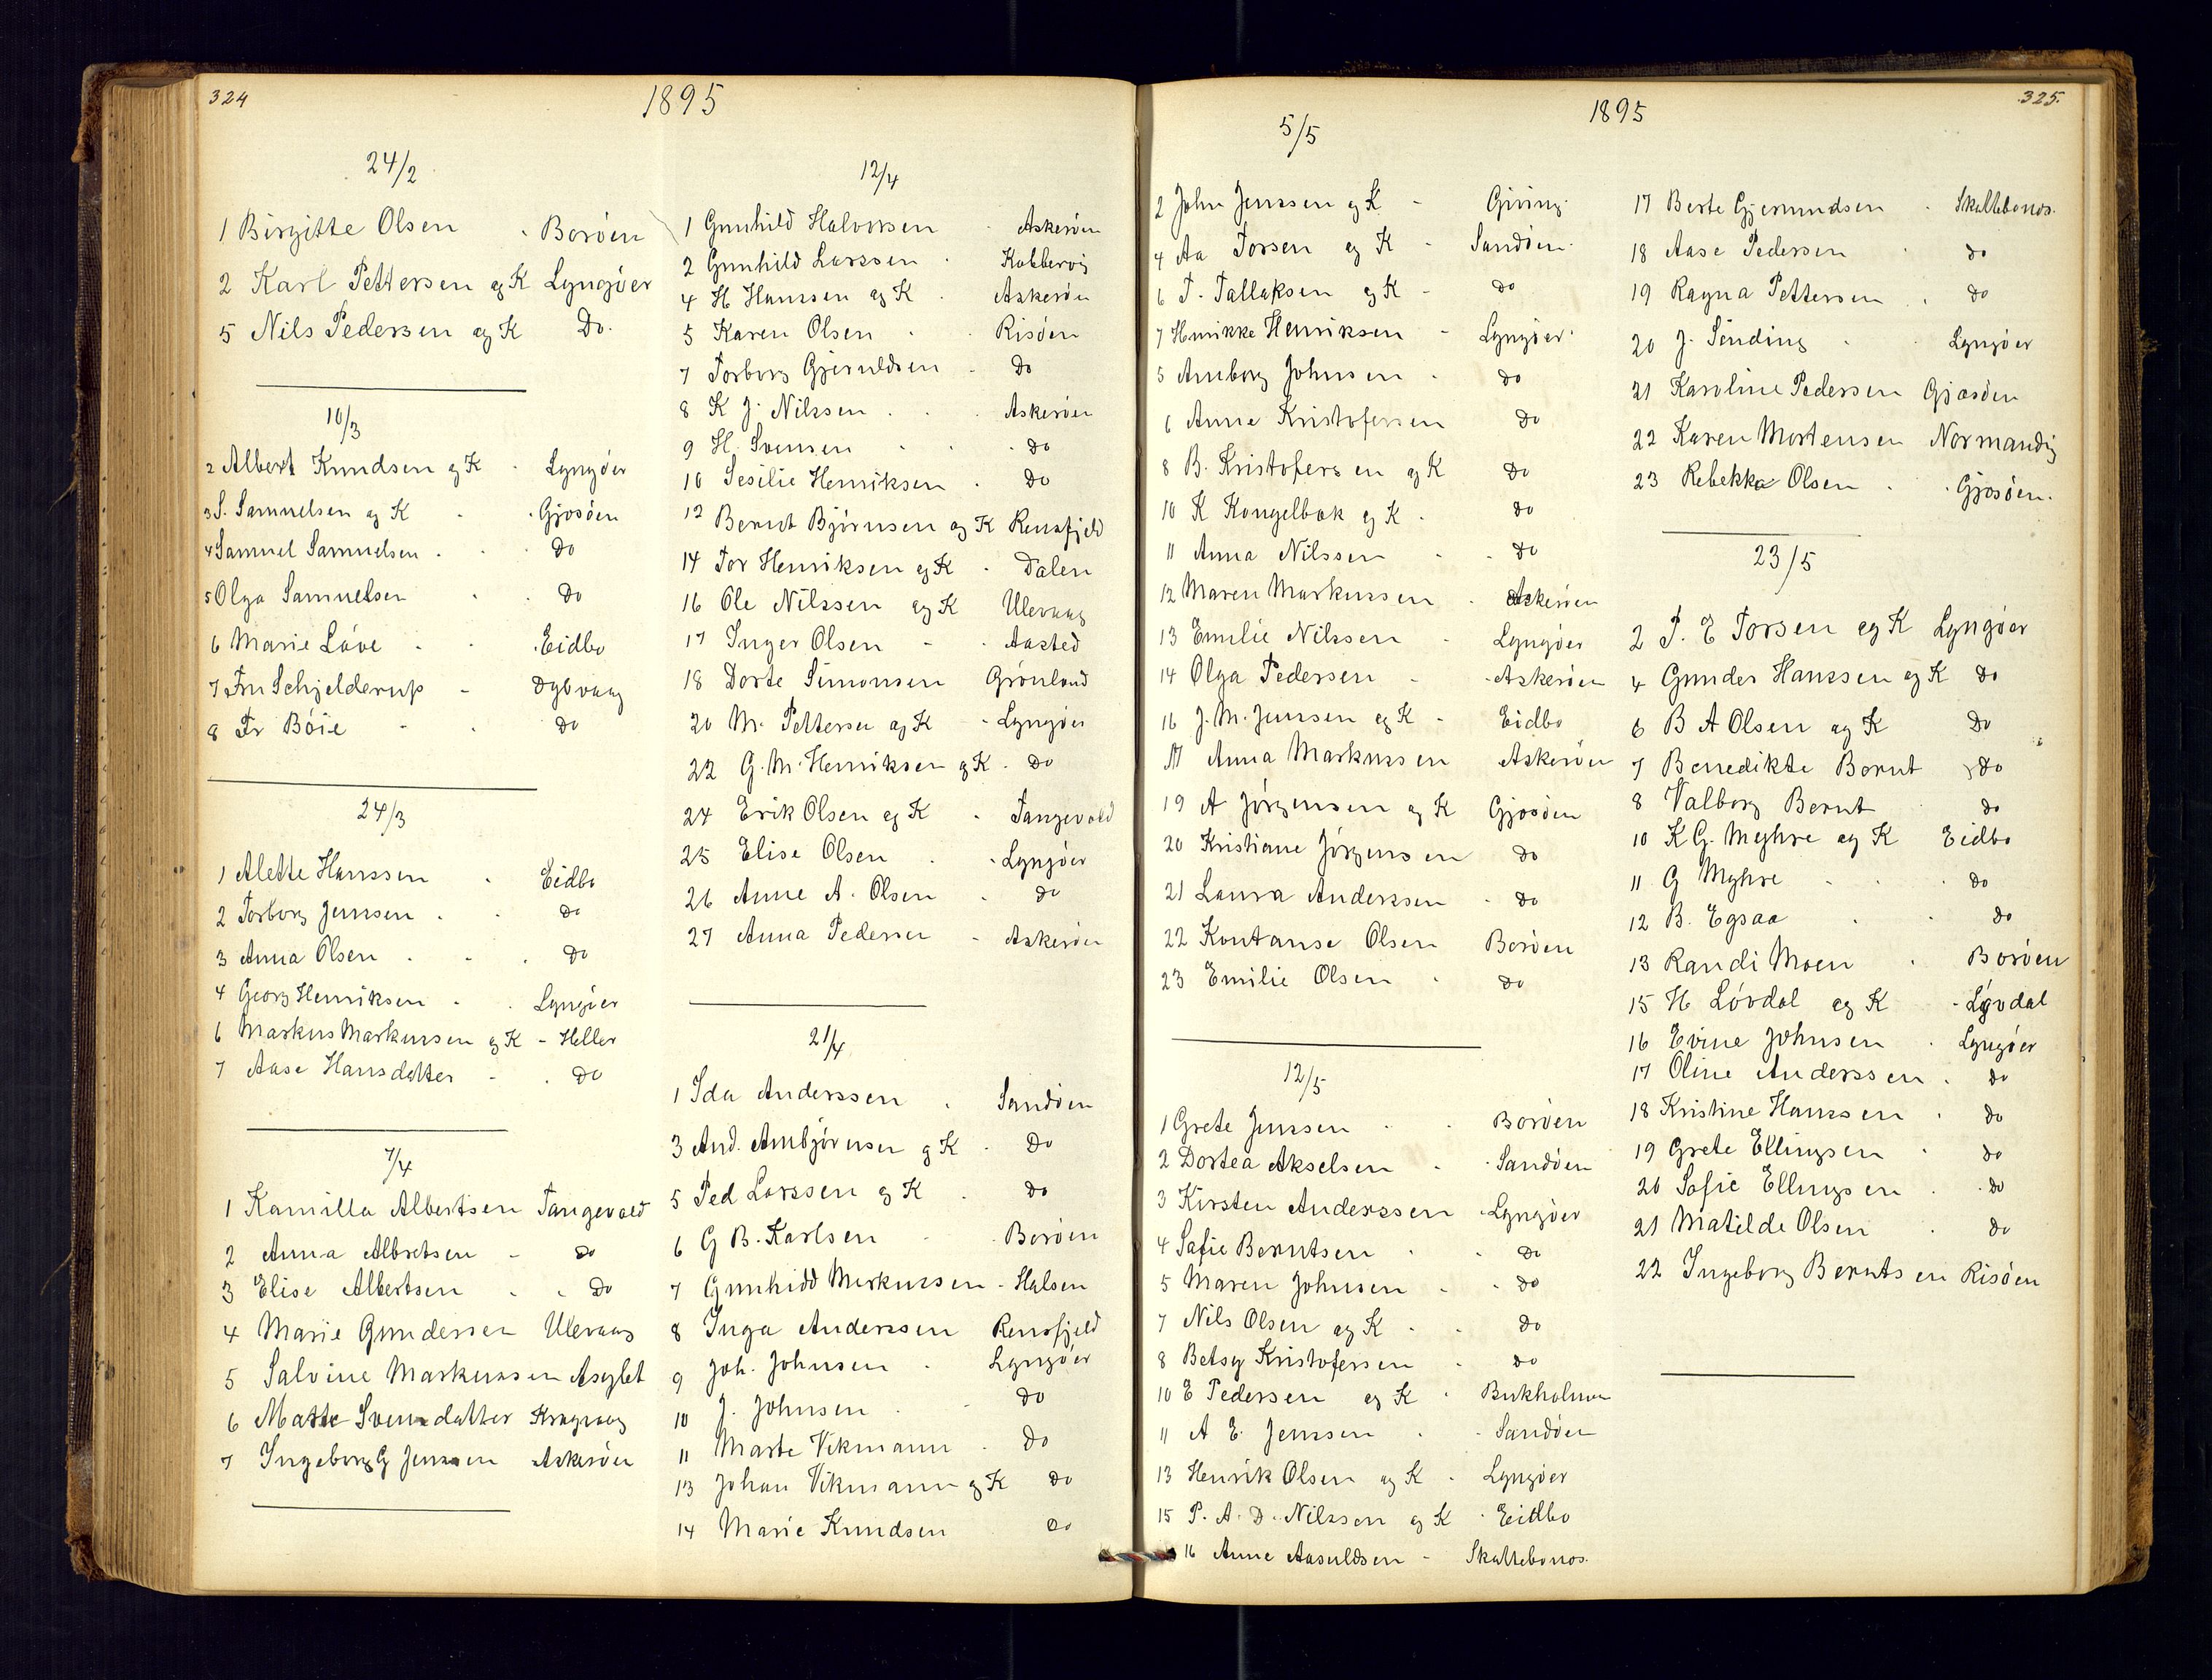 324
1895
24/2
1 Birgitte Olsen - Borøen
2 Karl Pettersen og K Lyngøer
5 Nils Pedersen og K Do.
10/3
2 Albert Knudsen og K - Lyngøer
3 S. Samuelsen og K - Gjosøen
4 Samuel Samuelsen - Do
5 Olga Samuelsen - Do
6 Marie Løve - Eidbo
7 Fru Schjelderup - Dybvaag
8 Fr Böie - Do
24/3
1 Alette Hanssen - Eidbo
2 Torborg Jenssen - Do
3 Anna Olsen - Do
4 Georg Henriksen - Lyngøer
6 Markus Markussen og K - Heller
7 Aase Hansdatter - Do
7/4
1 Kamilla Albertsen Tangevald
2 Anna Albretsen - Do
3 Elise Albertsen - Do
4 Marie Gundersen Ulevaag
5 Salvine Markussen Asylet
6 Matte Svensdatter Kragvaag
7 Ingeborg G Jenssen Askerøen
12/4
1 Gunhild Halvorsen - Askerøen
2 Gunhild Larssen - Kobbervig
4 H Hanssen og K - Askerøen
5 Karen Olsen - Risøen
7 Torborg Gjeruldsen - Do
8 K J. Nilssen - Askerøen
9 H. Svensen - Do
10 Sesilie Henriksen - Do
12 Bernt Bjørnsen og K Rensfjeld
14 Tor Henriksen og K - Dalen
16 Ole Nilssen og K Ulevaag
17 Inger Olsen - Aasted
18 Dorte Simonsen Grønland
20 M. Pettersen og K - Lyngøer
22 G. M. Henriksen og K - Do
24 Erik Olsen og K - Tangevald
25 Elise Olsen - Lyngøer
26 Anne A. Olsen - Do
27 Anna Pedersen - Askerøen
21/4
1 Ida Anderssen - Sandøen
3 And. Ambjørnsen og K - Do
5 Ped Larssen og K - Do
6 G B. Karlsen - Borøen
7 Gunhild Markussen - Halsen
8 Inga Anderssen Rensfjeld
9 Joh. Johnsen - Lyngøer
10 J. Johnsen - Do
11 Marte Vikmann - Do
13 Johan Vikmann og K Do
14 Marie Knudsen Do
325.
1895
5/5
2 John Jenssen og K - Giving.
4 Aa Torsen og K - Sandøen.
6 T. Tallaksen og K - Do
7 Henrikke Henriksen - Lyngøer
5 Amborg Johnsen - Do
6 Anne Kristofersen Do
8 B. Kristofersen og K Do
10 K Kongelbæk og K - Do
11 Anna Nilssen - Do
12 Maren Markussen - Askerøen
13 Emilie Nilssen - Lyngøer
14 Olga Pedersen - Askerøen
16 J. M. Jenssen og K - Eidbo
17 Anna Markussen Askerøen
19 A Jørgensen og K Gjosøen
20 Kristiane Jørgensen Do
21 Laura Anderssen - Do
22 Kontanse Olsen Borøen
23 Emilie Olsen - Do
12/5
1 Grete Jenssen - Borøen
2 Dortea Akselsen - Sandøen
3 Kirsten Anderssen - Lyngøer
4 Sofie Berntsen - Do
5 Maren Johnsen - Do
7 Nils Olsen og K - Do
8 Betsy Kristofersen - Do
10 E Pedersen og K - Bukholmen
11 A E. Jenssen - Sandøen
13 Henrik Olsen og K - Lyngøer
15 P. A. D. Nilssen og K - Eidbo
16 Anne Aasuldsen - Skaltebonos.
17 Berte Gjermundsen - Skaltebonos.
18 Aase Pedersen - Do
19 Ragna Pettersen - Do
20 J. Sinding - Lyngøer
21 Karoline Pedersen Gjosøen
22 Karen Mortensen Normandig
23 Rebekka Olsen - Gjosøen.
23/5
2 T. E Torsen og K Lyngøer
4 Gunder Hanssen og K Do
6 B A Olsen og K Do
7 Benedikte Bernt Do
8 Valborg Bernt Do
10 K G. Myhre og K Eidbo
11 G Myhre - Do
12 B. Egsaa - Do
13 Randi Moen - Borøen
15 H Løvdal og K - Løvdal
16 Evine Johnsen - Lyngøer
17 Oline Anderssen - Do
18 Kristine Hanssen - Do
19 Grete Ellingsen - Do
20 Sofie Ellingsen - Do
21 Matilde Olsen - Do
22 Ingeborg Berntsen Risøen